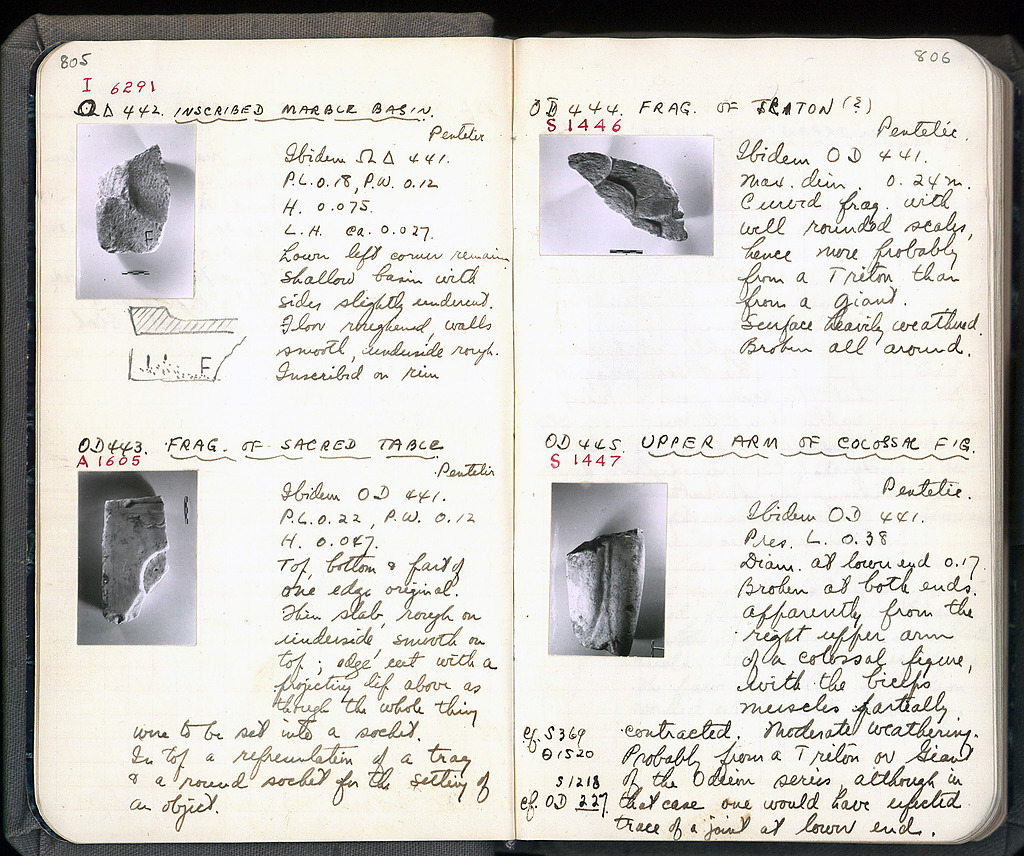 805
I 6291
ΩΔ 442. INSCRIBED MARBLE BASIN.
Pentelic
Ibidem ΩΔ 441.
P.L. 0.18, P.W. 0.12
H. 0.075.
L.H. ca. 0.027.
Lower left corner remains
Shallow basin with
sides slightly undercut.
Floor roughened, walls
smooth, underside rough.
Inscribed on rim
F
OD 443. FRAG. OF SACRED TABLE
A 1605
Pentelic
Ibidem OD 441.
P.L. 0.22, P.W. 0.12
H. 0.047.
Top, bottom & part of
one edge original.
Thin slab, rough on
underside, smooth on
top; edge cut with a
projecting lip above as
though the whole thing
were to be set into a socket.
In top a representation of a tray
& a round socket for the setting of
an object.
806
OD 444. FRAG. OF TRITON (?)
S 1446
Pentelic.
Ibidem OD 441.
Max. dim. 0.24 m.
Curved frag. with
well rounded scales,
hence more probably
from a Triton than
from a giant.
Surface heavily weathered.
Broken all around.
OD 445. UPPER ARM OF COLOSSAL FIG.
S 1447
Pentelic.
Ibidem OD 441.
Pres. L. 0.38
Diam. at lower end 0.17.
Broken at both ends.
apparently from the
right upper arm
of a colossal figure,
with the biceps
muscles partially
cf. S 369 contracted. Moderate weathering.
Θ 1520 Probably from a Triton or Giant
S 1218 of the Odeion series although in
cf. OD 227. that case one would have expected
trace of a joint at lower end.